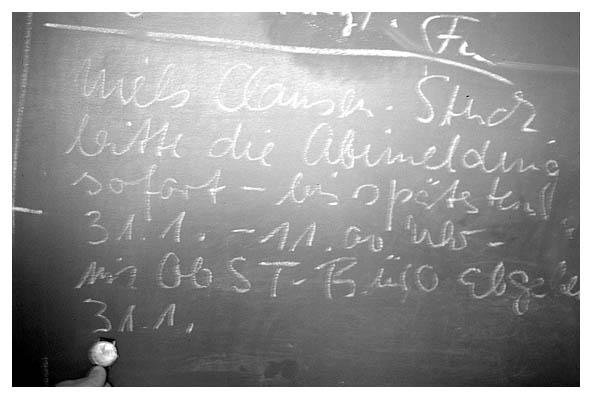 Niels Clausen.
bitte die Abimeldung
sofort - bis spätestens
31.1. - 11.00 Uhr -
im ObST-Büro abgeben
31.1.